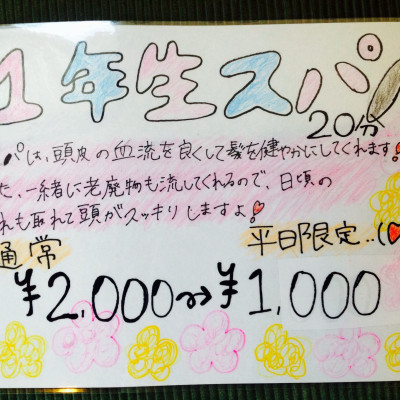 1年生スパ
20分
パは、頭皮の血流を良くして髪を健やかにしてくれます!
た、一緒に老廃物も流してくれるので、日頃の
れも取れて頭がスッキリしますよ♡
通常
平日限定..(♡
¥2,000→¥1,000